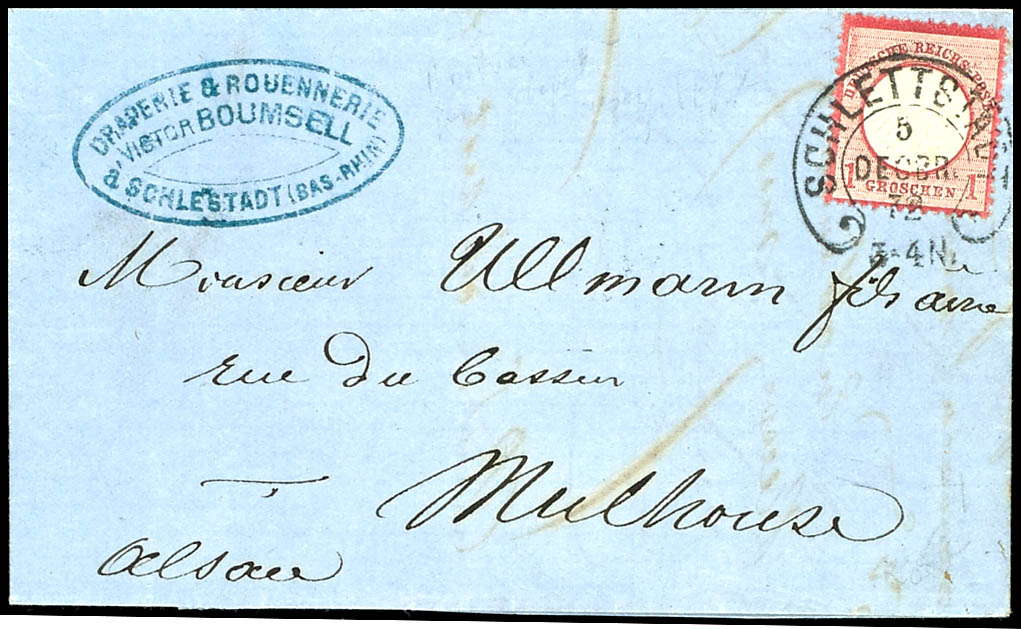 DRAPERIE & ROUENNERIE
VICTOR BOUMSELL
à SCHLESTADT (BAS-RHIN)
DEUTSCHE REICHS-POST
1 GROSCHEN 1
SCHLETTSTADT
5
DECBR.
72
3-4 N.
Monsieur Ullmann fils ainé
rue du Bassin
Mulhouse
Alsace